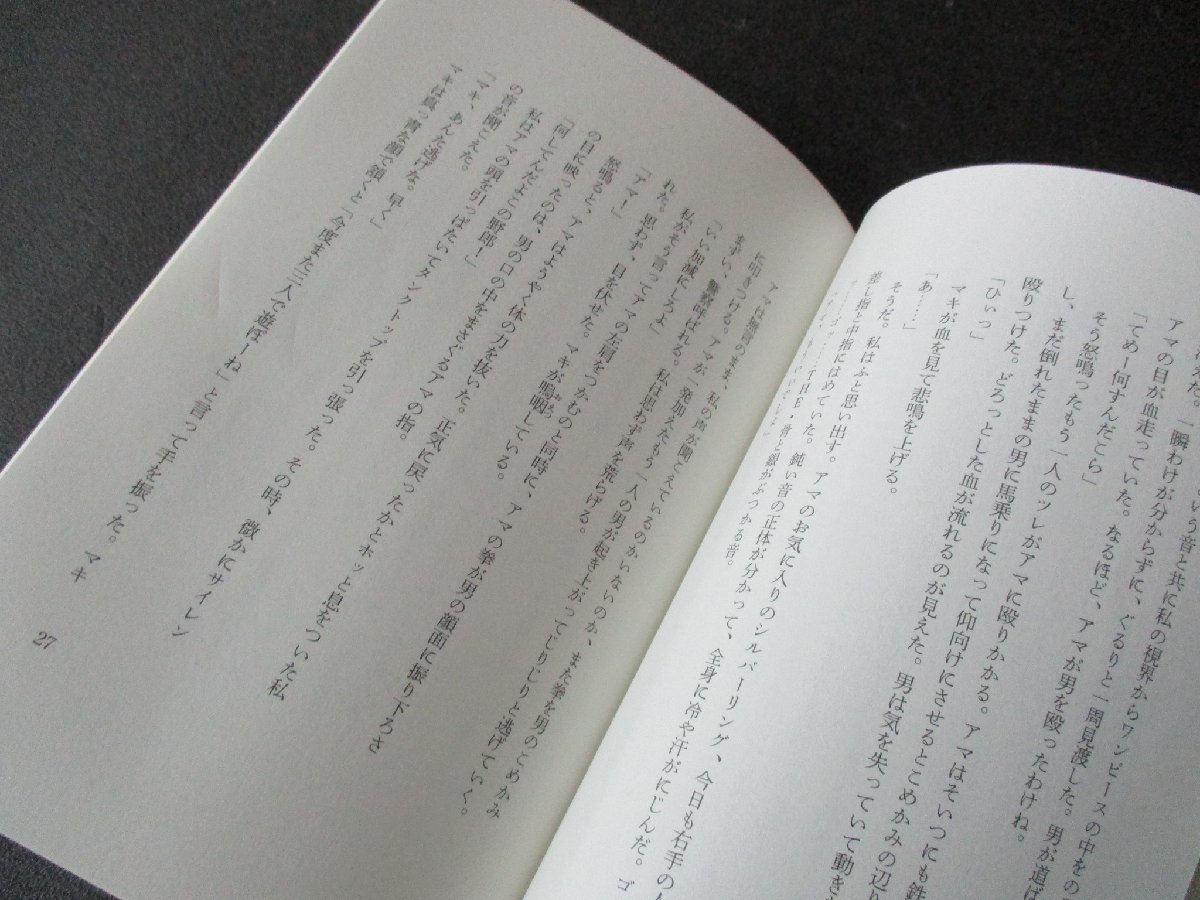 いう音と共に私の視界からワンピースの中をの
えた。一瞬わけが分からずに、ぐるりと一周見渡した。男が道ば
アマの目が血走っていた。なるほど、アマが男を殴ったわけね。
「てめー何すんだこら」
そう怒鳴ったもう一人のツレがアマに殴りかかる。アマはそいつにも鉄
し、まだ倒れたままの男に馬乗りになって仰向けにさせるとこめかみの辺り
殴りつけた。どろっとした血が流れるのが見えた。男は気を失っていて動き
「ひいっ」
マキが血を見て悲鳴を上げる。
「あ……」
そうだ。私はふと思い出す。アマのお気に入りのシルバーリング、今日も右手の人
差し指と中指にはめていた。鈍い音の正体が分かって、全身に冷や汗がにじんだ。ゴ
骨と銀がぶつかる音。
に叩きつける。
アマは無言のまま、私の声が聞こえているのかいないのか、また拳を男のこめかみ
まずい、警察呼ばれる。アマが一発加えたもう一人の男が起き上がってじりじりと逃げていく。
「いい加減にしろよ」
私がそう言ってアマの左肩をつかむのと同時に、アマの拳が男の顔面に振り下ろさ
れた。思わず、目を伏せた。マキが嗚咽している。
おえつ
「アマ！」
怒鳴ると、アマはようやく体の力を抜いた。正気に戻ったかとホッと息をついた私
の目に映ったのは、男の口の中をまさぐるアマの指。
「何してんだよこの野郎！」
私はアマの頭を引っぱたいてタンクトップを引っ張った。その時、微かにサイレン
の音が聞こえた。
「マキ、あんた逃げな。早く」
マキは真っ青な顔で頷くと「今度また三人で遊ぼーね」と言って手を振った。マキ
27